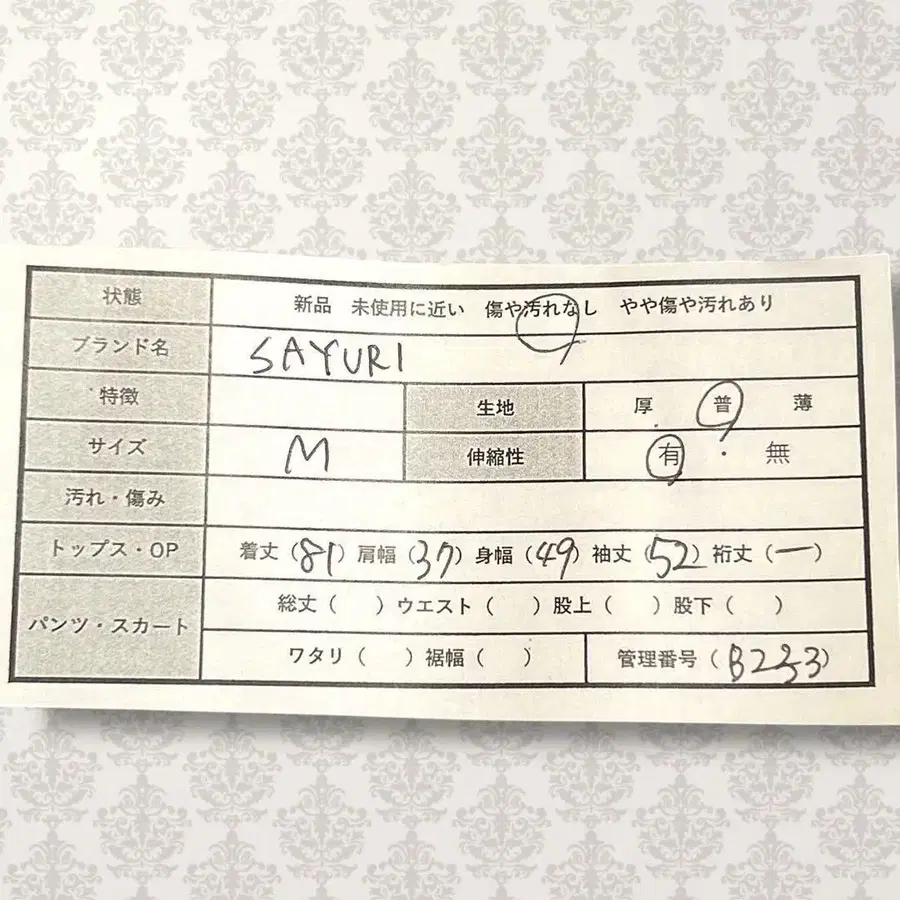 状態 新品 未使用に近い 傷や汚れなし やや傷や汚れあり
ブランド名 SAYURI
特徴 生地 厚 普 薄
サイズ M 伸縮性 有 ・ 無
汚れ・傷み
トップス・OP 着丈(81) 肩幅(37) 身幅(49) 袖丈(52) 裄丈(ー)
パンツ・スカート 総丈( ) ウエスト( ) 股上( ) 股下( )
ワタリ( ) 裾幅( ) 管理番号(B233)